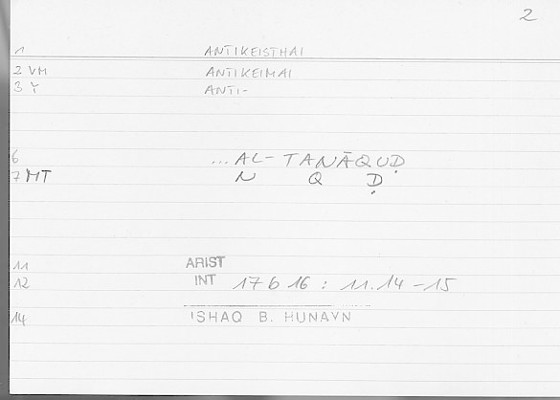 2
1 ANTIKEISTHAI
2 VM ANTIKEIMAI
3 Y ANTI-
6 ...AL-TANĀQUḌ
7 MT N Q Ḍ
11 ARIST
12 INT 17 b 16 : 11.14-15
14 ISHAQ B. HUNAYN